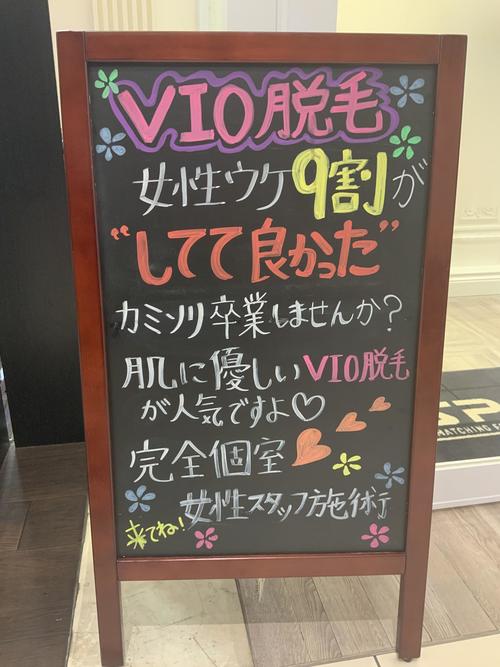 VIO脱毛
女性ウケ9割が
"してて良かった"
カミソリ卒業しませんか?
肌に優しいVIO脱毛
が人気ですよ♡
完全個室
女性スタッフ施術
来てね!
MATCHING